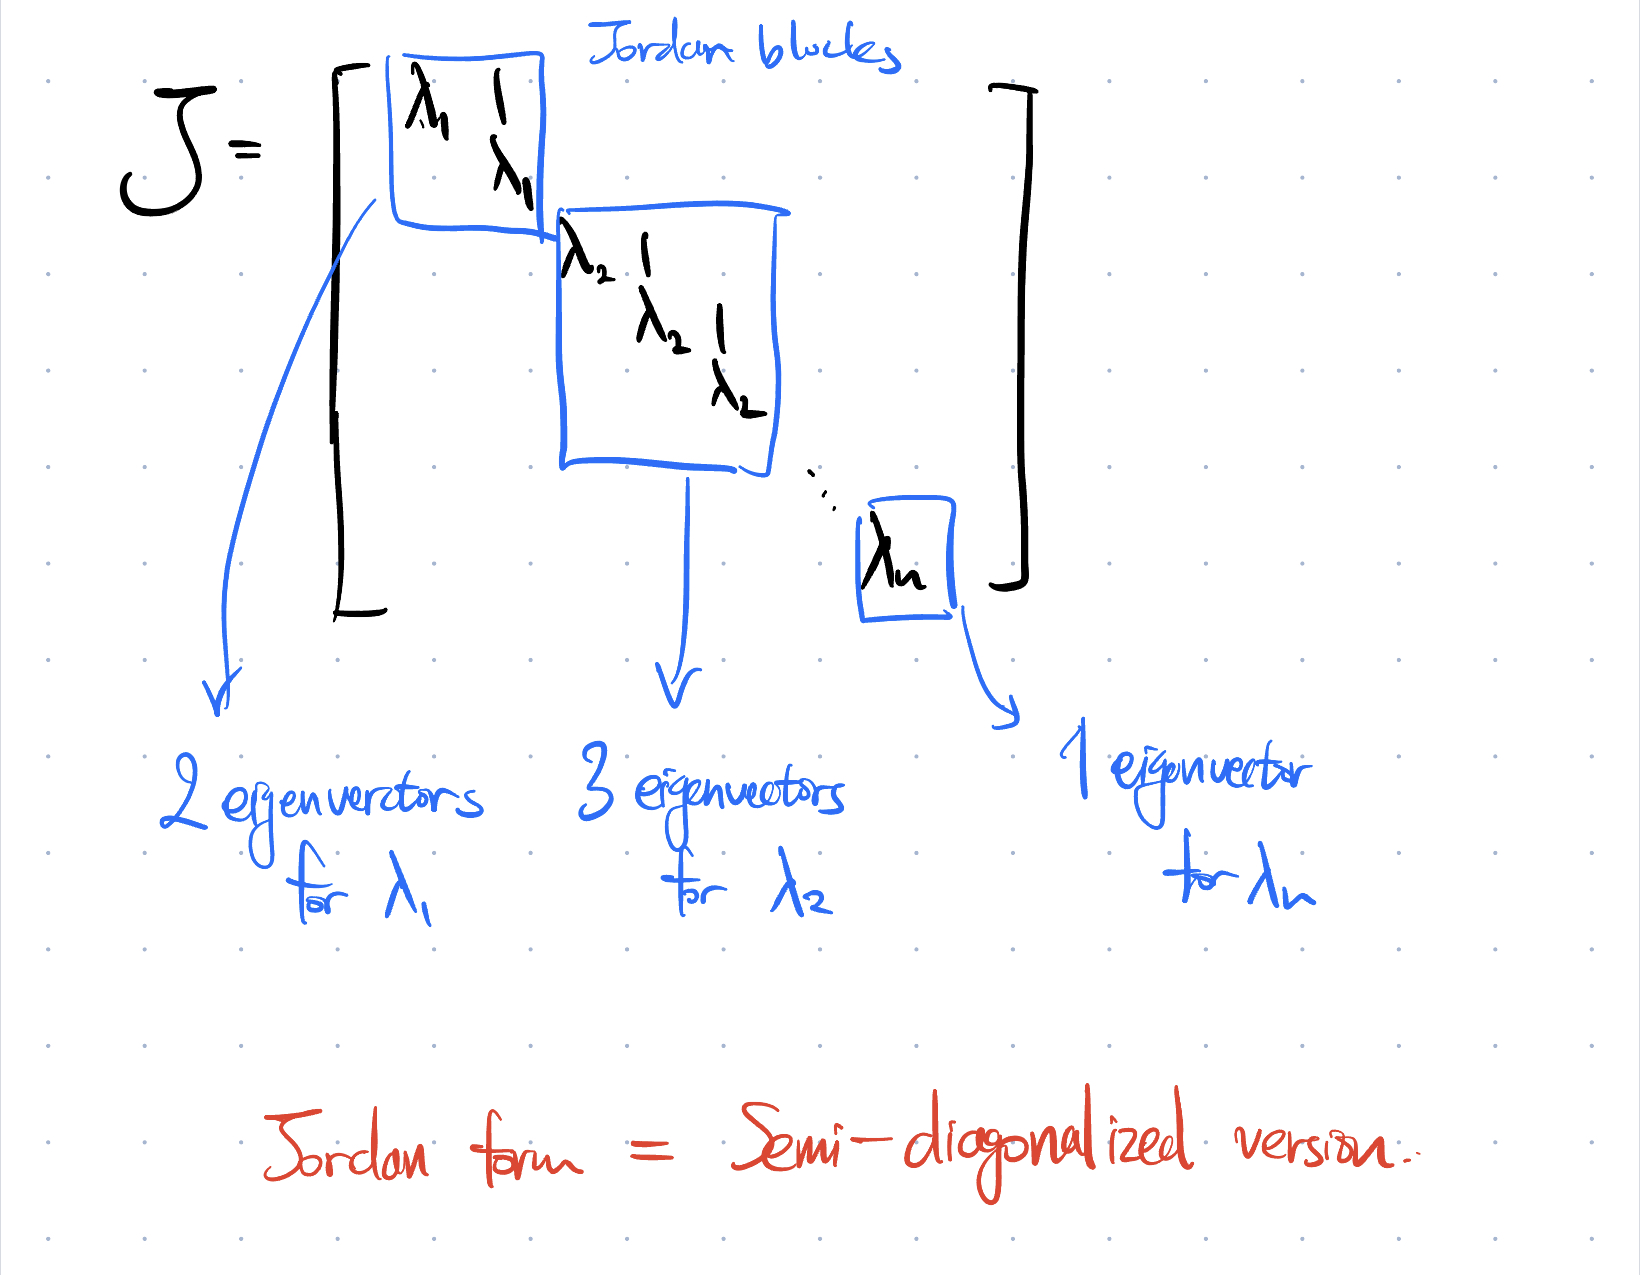 Jordan blocks
J =
λ₁ 1
λ₁
λ₂ 1
λ₂ 1
λ₂
⋱
λₙ
2 eigenverctors
for λ₁
3 eigenvectors
for λ₂
1 eigenvector
for λₙ
Jordan form = Semi-diagonalized version.